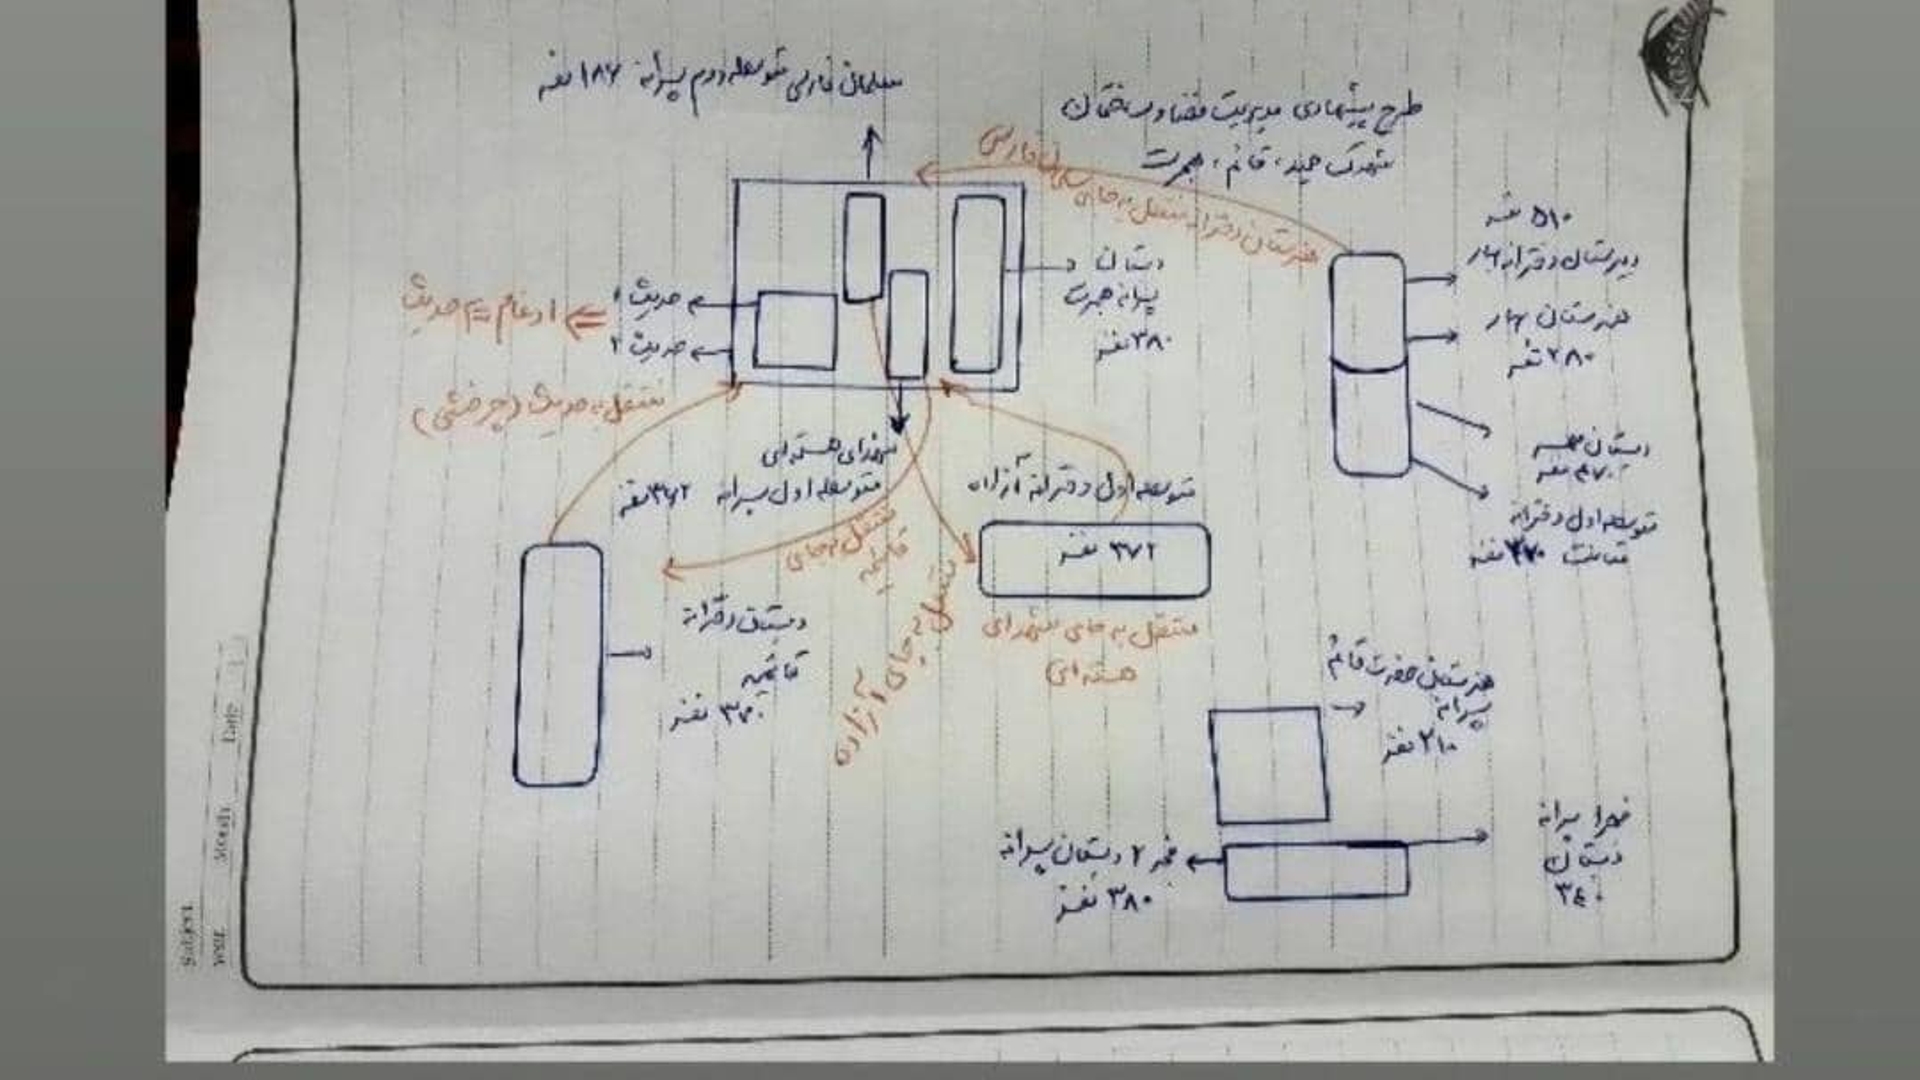 طرح پیشنهادی مدیریت فضا و ساختمان
شهرک حمید، قائم، هجرت
سلمان فارسی متوسطه دوم پسرانه ۱۸۷ نفر
هنرستان دخترانه منتقل به جای سلمان فارسی
۵۱۰ نفر
دبیرستان دخترانه بهار
هنرستان بهار
۲۸۰ نفر
دبستان
نفر
متوسطه اول دخترانه
نفر
دبستان
پسرانه هجرت
۳۸۰ نفر
حدیث ۱
حدیث ۲
ادغام حدیث
منتقل به حدیث (چرخشی)
شهدای هسته‌ای
متوسطه اول پسرانه ۳۶۲ نفر
منتقل به جای
قائمیه
منتقل به جای آزاده
متوسطه اول دخترانه آزاده
۳۷۲ نفر
منتقل به جای شهدای
هسته‌ای
دبستان دخترانه
قائمیه
۳۷۰ نفر
هنرستان حضرت قائم
پسرانه
۲۱۰ نفر
فجر ۲ دبستان پسرانه
۳۸۰ نفر
پسرانه
دبستان
۳۴۰
Subject
Year
Month
Date